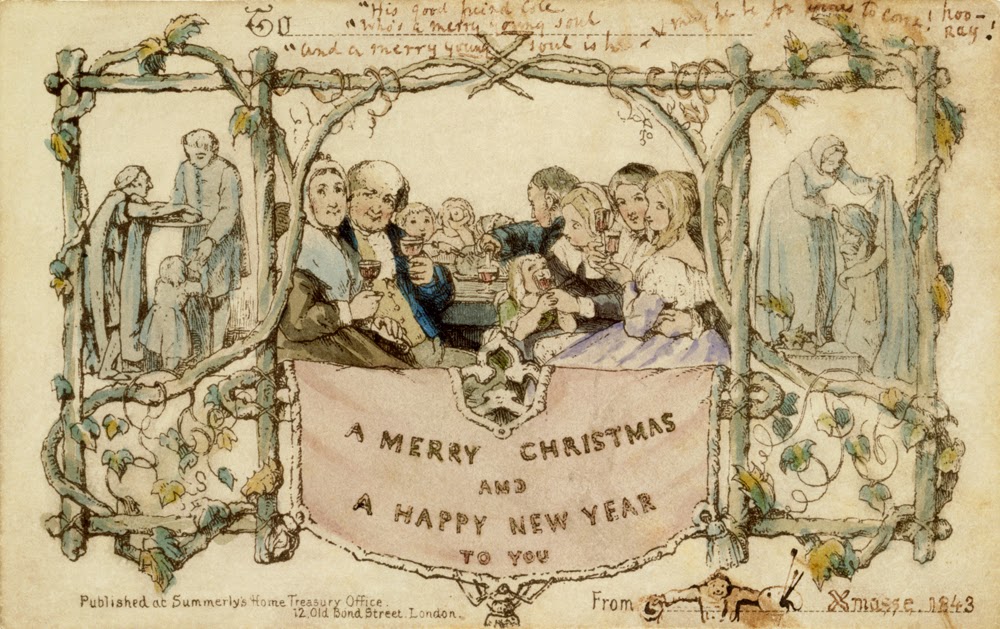 To "His good freind Cole
"Who's a merry young soul
"and a merry young soul is he
& may he be for years to come! hoo-
Ray!
A MERRY CHRISTMAS
AND
A HAPPY NEW YEAR
TO YOU
Published at Summerly's Home Treasury Office.
12, Old Bond Street, London.
From
Xmasse, 1843